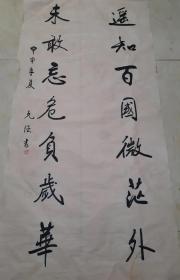 遥知百國微茫外
未敢忘危負歲華
甲申年夏
書